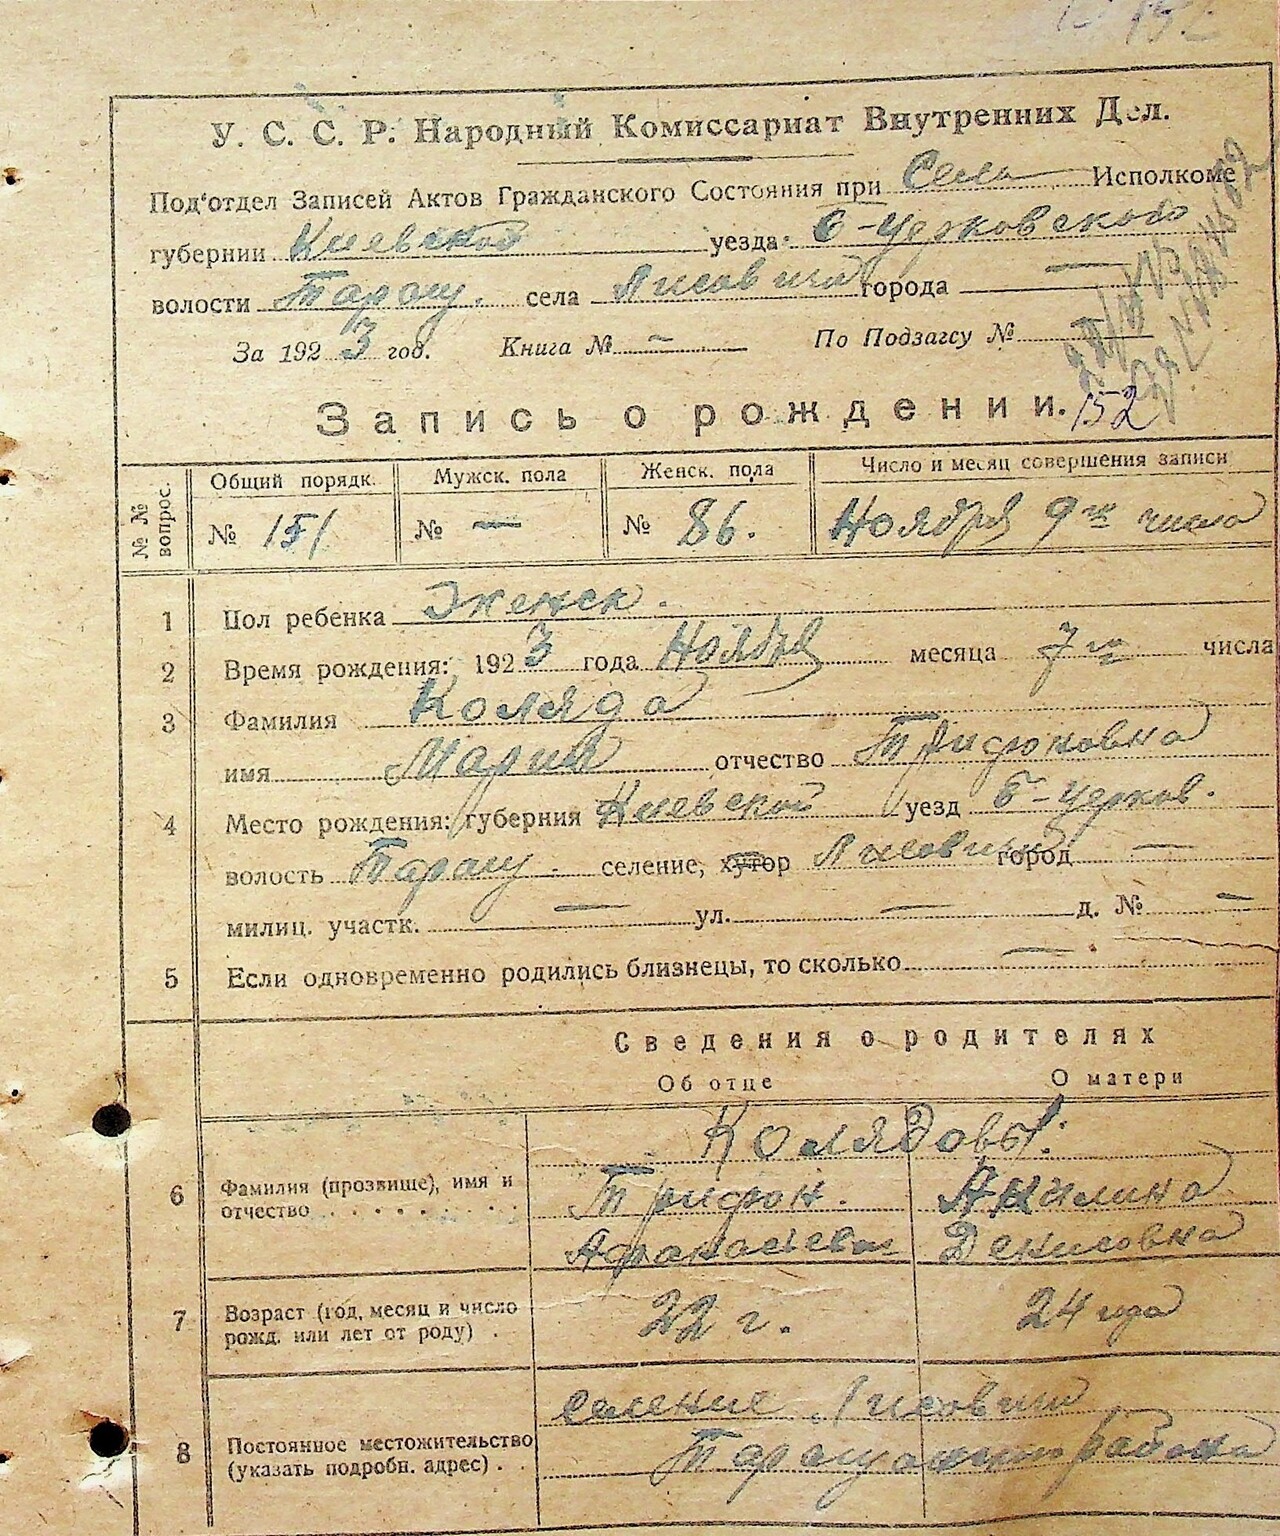 У. С. С. Р. Народный Комиссариат Внутренних Дел.
Под'отдел Записей Актов Гражданского Состояния при Села Исполкоме
губернии Киевской уезда Б-Церковского
волости Таращ. села Лисовичи города —
За 1923 год. Книга № — По Подзагсу №
Запись о рождении. 152
№ № вопрос. Общий порядк. Мужск. пола Женск. пола Число и месяц совершения записи
№ 151 № — № 86. Ноября 9го числа
1 Пол ребенка Женск.
2 Время рождения: 1923 года Ноября месяца 7го числа
3 Фамилия Коляда
имя Мария отчество Трифоновна
4 Место рождения: губерния Киевской уезд Б-Церков.
волость Таращ. селение, хутор Лисовичи город —
милиц. участк. — ул. — д. № —
5 Если одновременно родились близнецы, то сколько —
Сведения о родителях
Об отце О матери
Колядовы:
6 Фамилия (прозвище), имя и Трифон. Акилина
отчество Афанасиевич Денисовна
7 Возраст (год, месяц и число 22 г. 24 года
рожд. или лет от роду)
селение Лисовичи
8 Постоянное местожительство Таращанского района
(указать подробн. адрес)